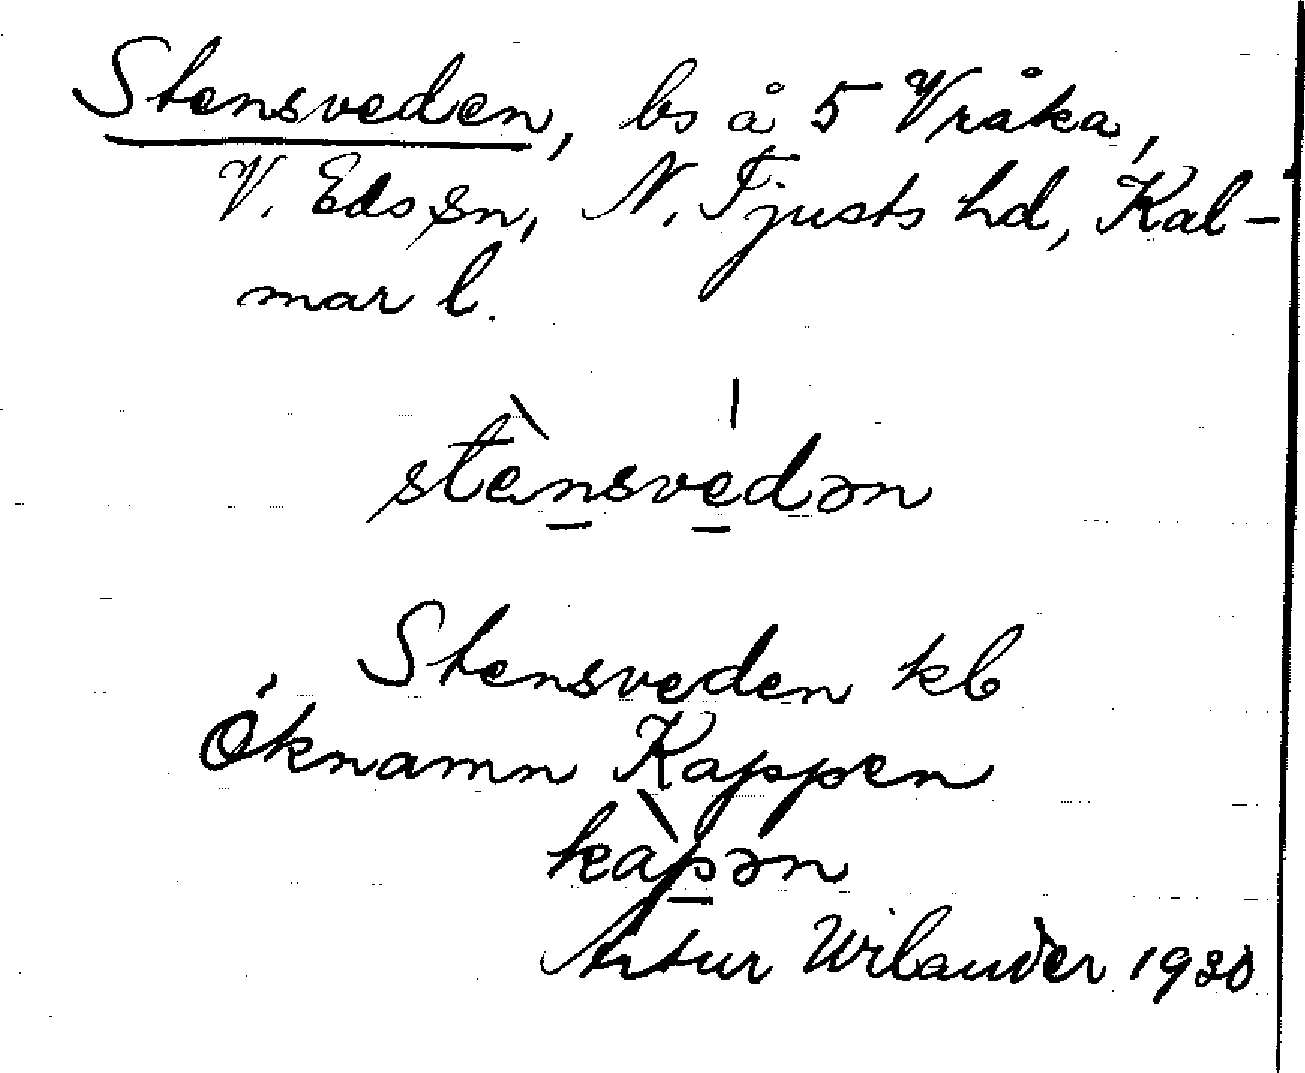 Stensveden, bs å 5 Vråka,
V. Eds sn, N. Tjusts hd, Kal-
mar l.
stènsvedən
Stensveden kb
Öknamn Kappen
kàpən
Artur Wilander 1930